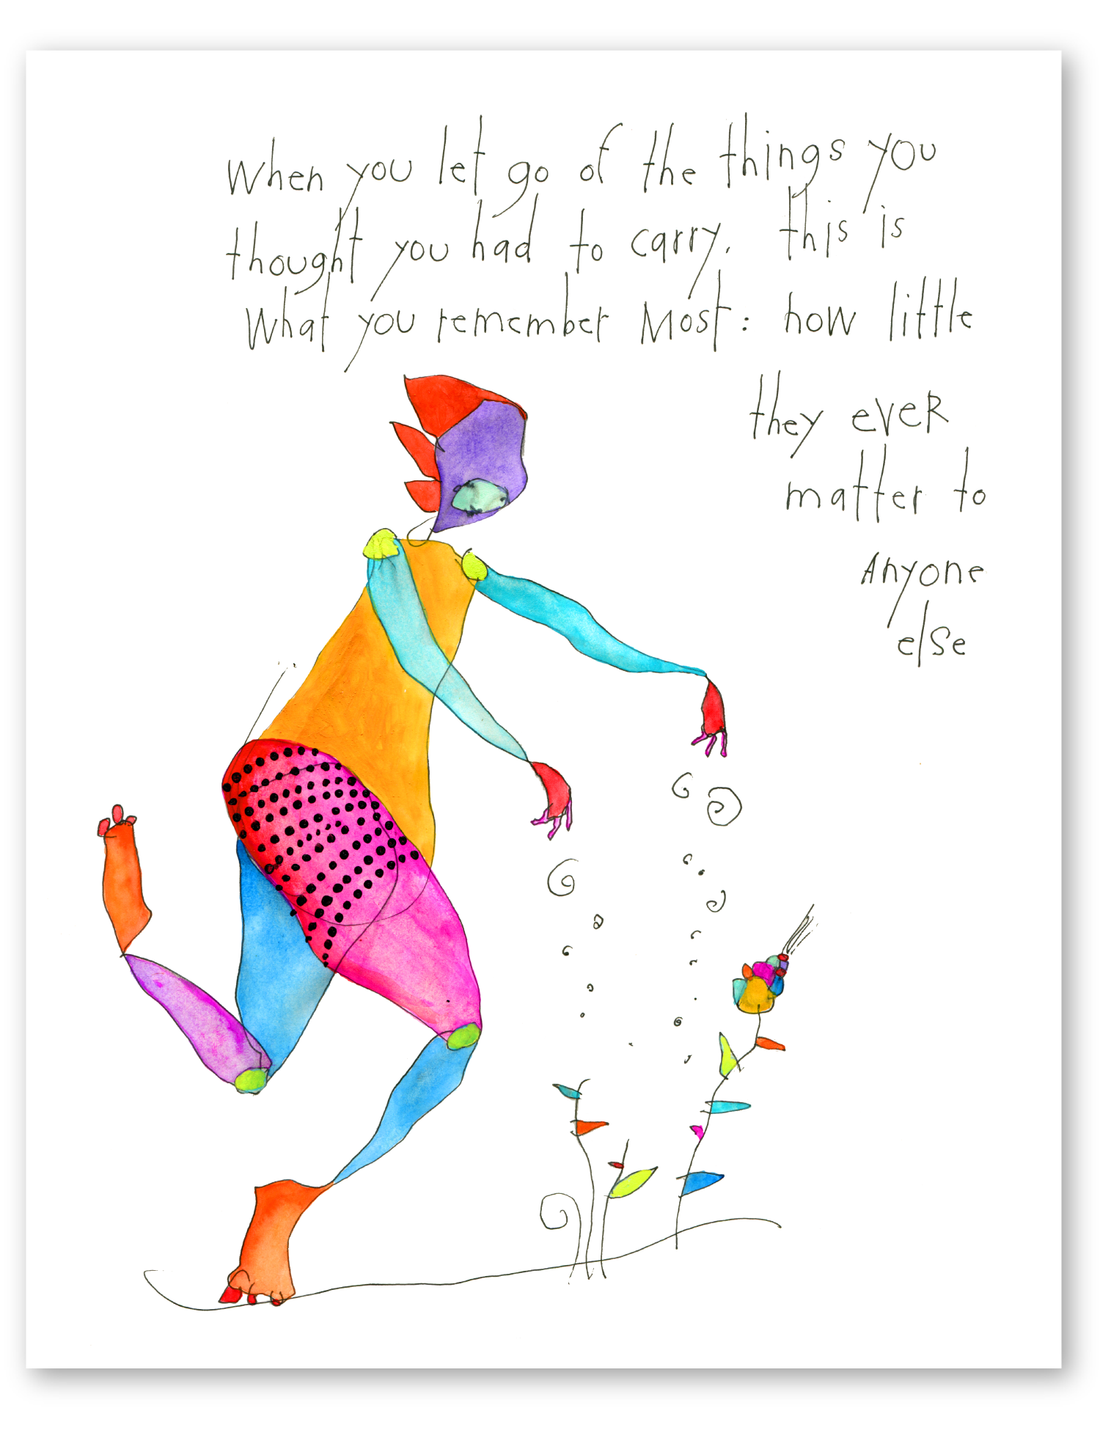 When you let go of the things you
thought you had to carry, this is
What you remember Most: how little
they eveR
matter to
Anyone
else